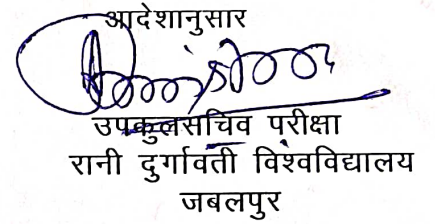 आदेशानुसार
उपकुलसचिव परीक्षा
रानी दुर्गावती विश्वविद्यालय
जबलपुर